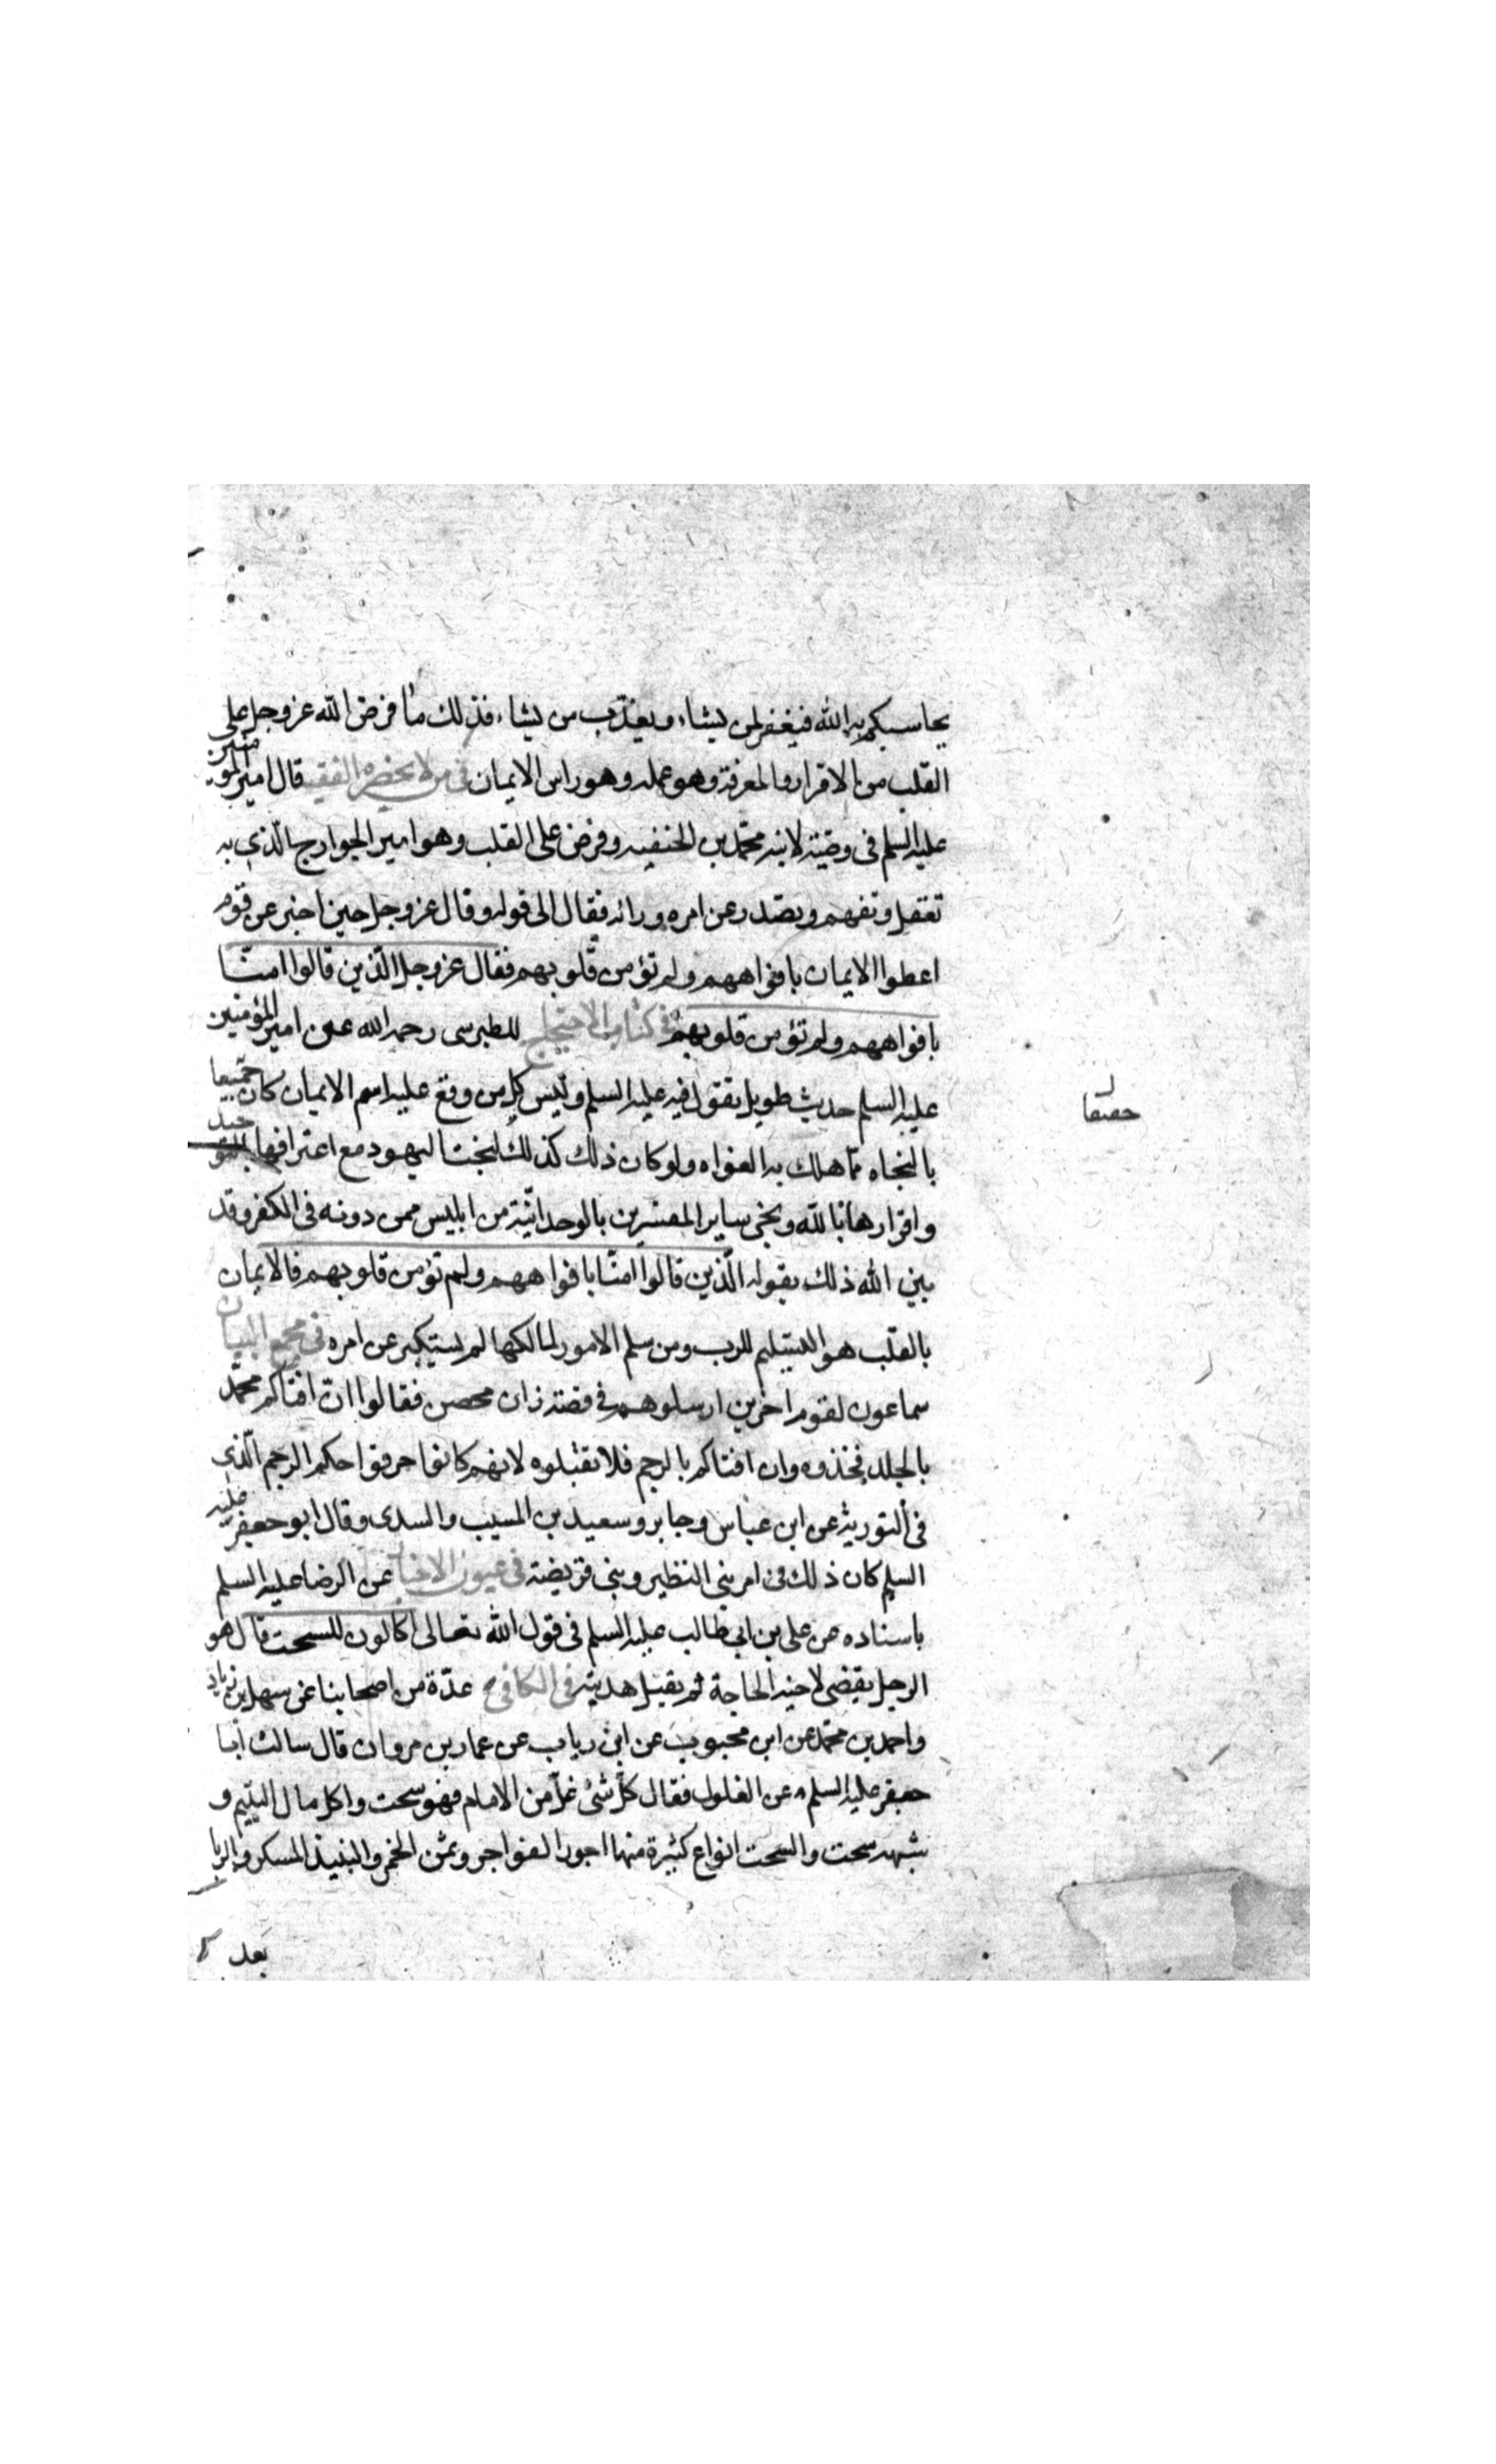 يحاسبكم به الله فيغفر لمن يشاء ويعذب من يشاء فذلك ما فرض الله عز وجل على
القلب من الاقرار والمعرفة وهو عمله وهو راس الايمان في من لا يحضره الفقيه قال امير المؤمنين
عليه السلم فى وصيته لابنه محمد بن الحنفيه وفرض على القلب وهو امير الجوارح الذي به
تعقل وتفهم ويصدر عن امره ورائه فقال الى قوله وقال عز وجل حين اخبر عن قوم
اعطوا الايمان بافواههم ولم تؤمن قلوبهم فقال عز وجل الذين قالوا امنا
بافواههم ولم تؤمن قلوبهم فى كتاب الاحتجاج للطبرسى رحمه الله عن امير المؤمنين
عليه السلم حديث طويل يقول فيه عليه السلم وليس كل من وقع عليه اسم الايمان كان حقيقا
حقيقا
بالنجاه مما هلك به الغواه ولو كان ذلك كذلك لنجت اليهود مع اعترافها
واقرارها بالله ونجى ساير المقرين بالوحدانية من ابليس ممن دونه فى الكفر وقد
بين الله ذلك بقوله الذين قالوا امنا بافواههم ولم تؤمن قلوبهم فالايمان
بالقلب هو التسليم للرب ومن سلم الامور لمالكها لم يستكبر عن امره فى مجمع البيان
سماعون لقوم اخرين ارسلوهم فى قصة زان محصن فقالوا ان افتاكم محمد
بالجلد فخذوه وان افتاكم بالرجم فلا تقبلوه لانهم كانوا حرفوا حكم الرجم الذى
فى التورية عن ابن عباس وجابر وسعيد بن المسيب والسدى وقال ابو جعفر عليه
السلم كان ذلك فى امر بنى النظير وبنى قريضة فى عيون الاخبار عن الرضا عليه السلم
باسناده عن على بن ابى طالب عليه السلم فى قول الله تعالى اكالون للسحت قال هو
الرجل يقضى لاخيه الحاجة ثم يقبل هديته فى الكافى عدة من اصحابنا عن سهل بن زياد
واحمد بن محمد عن ابن محبوب عن ابن رياب عن عمار بن مروان قال سالت ابا
جعفر عليه السلم عن الغلول فقال كل شئ غل من الامام فهو سحت واكل مال اليتيم و
شبهه سحت والسحت انواع كثيرة منها اجور الفواجر وثمن الخمر والنبيذ المسكر والربا
بعد